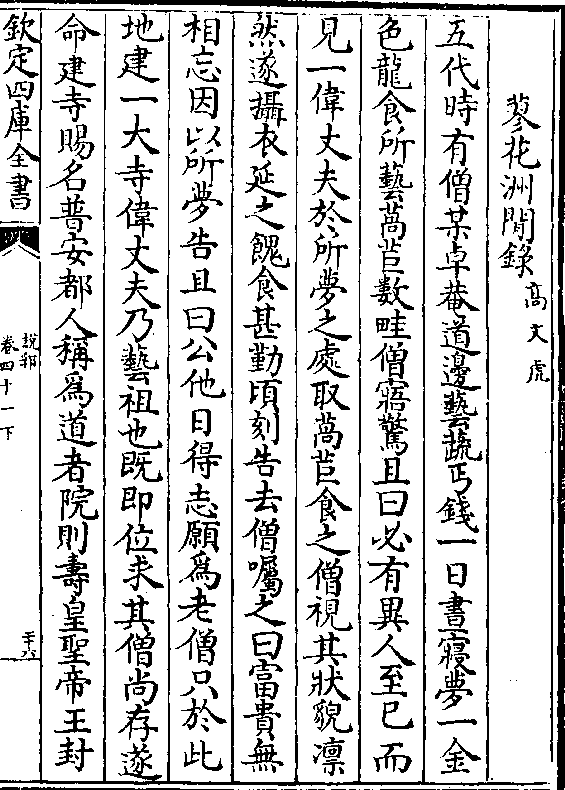 蓼花洲閒錄
高文虎
五代時有僧某卓菴道邊藝蔬丐錢一日晝寢夢一金
色龍食所藝萵苣數畦僧寤驚且曰必有異人至已而
見一偉丈夫於所夢之處取萵苣食之僧視其狀貌凛
然遂攝衣延之餽食甚勤頃刻告去僧囑之曰富貴無
相忘因以所夢告且曰公他日得志願爲老僧只於此
地建一大寺偉丈夫乃藝祖也既即位求其僧尚存遂
命建寺賜名普安都人稱爲道者院則壽皇聖帝王封
欽定四庫全書
說郛
卷四十一下